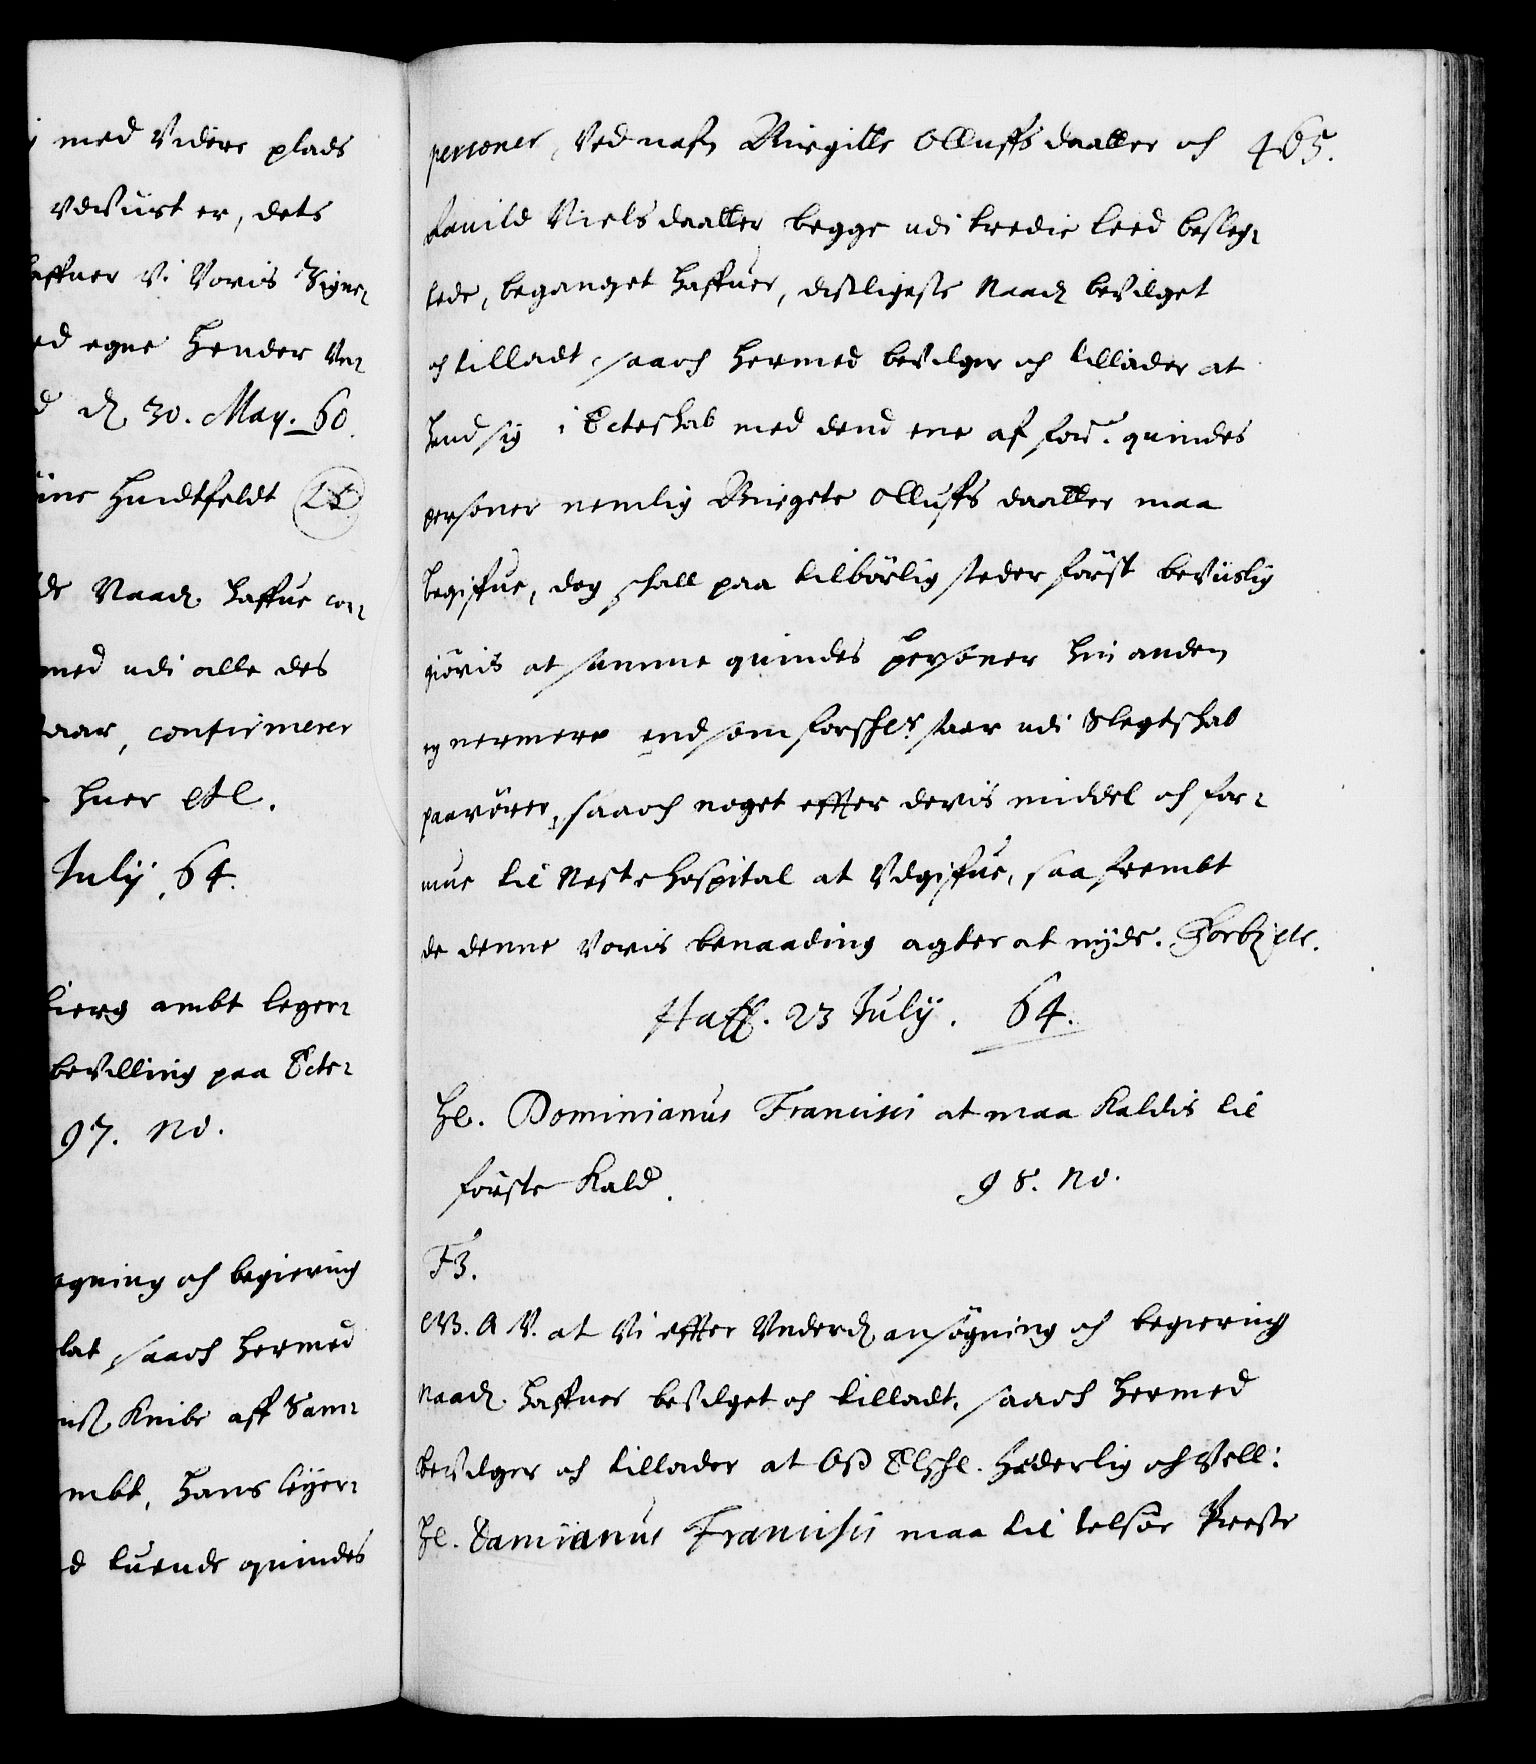 med Videre plads
vdviist er, dets
haffuer Vi Voris Signe-
ed egne Hender Vn-
d. 30. May. 60.
Huidtfeldt LS
de Naad. Haffue con-
med udi alle des
staar, confirmerer
huer etc.
July. 64.
bierg ambt leger-
bevilling paa Ecte-
97. No.
egning och begiering
lat, saaoch hermed
Knibe aff Sam-
ambt, hans leyer-
d tuende quindes
personer, Ved nafn Birgitte Olluffs daatter och 465.
Bauild Niels daatter begge udi tredie leed besleg-
tede, begaaet haffuer, disligeste Naad. bevilget
och tilladt, saaoch hermed bevilger och tillader at
hand sig i Ecteskab med dend ene af for.ne quindes
personer nemlig Birgete Olluffs daatter maa
begiffue, dog skall paa tilbörlig steder först beviislig
giöris at samme quindes personer hin anden
ej nermere end som forschr. staar udi Slegtskab
paarörer, saaoch noget effter deris middel och for-
mue til Neste hospital at Udgiffue, saa frembt
de denne Voris benaading agter at nyde. Forb. etc.
Haff. 23 July. 64.
Hr. Dominianus Francisci at maa Kaldis til
förste Kald. 98. No.
F3.
G. A. V. at Vi effter Underd. ansögning och begiering
Naad. haffuer bevilget och tilladt, saaoch hermed
bevilger och tillader at Oss Elskl. Hæderlig och Vell:
Hr. Damianus Francisci maa til